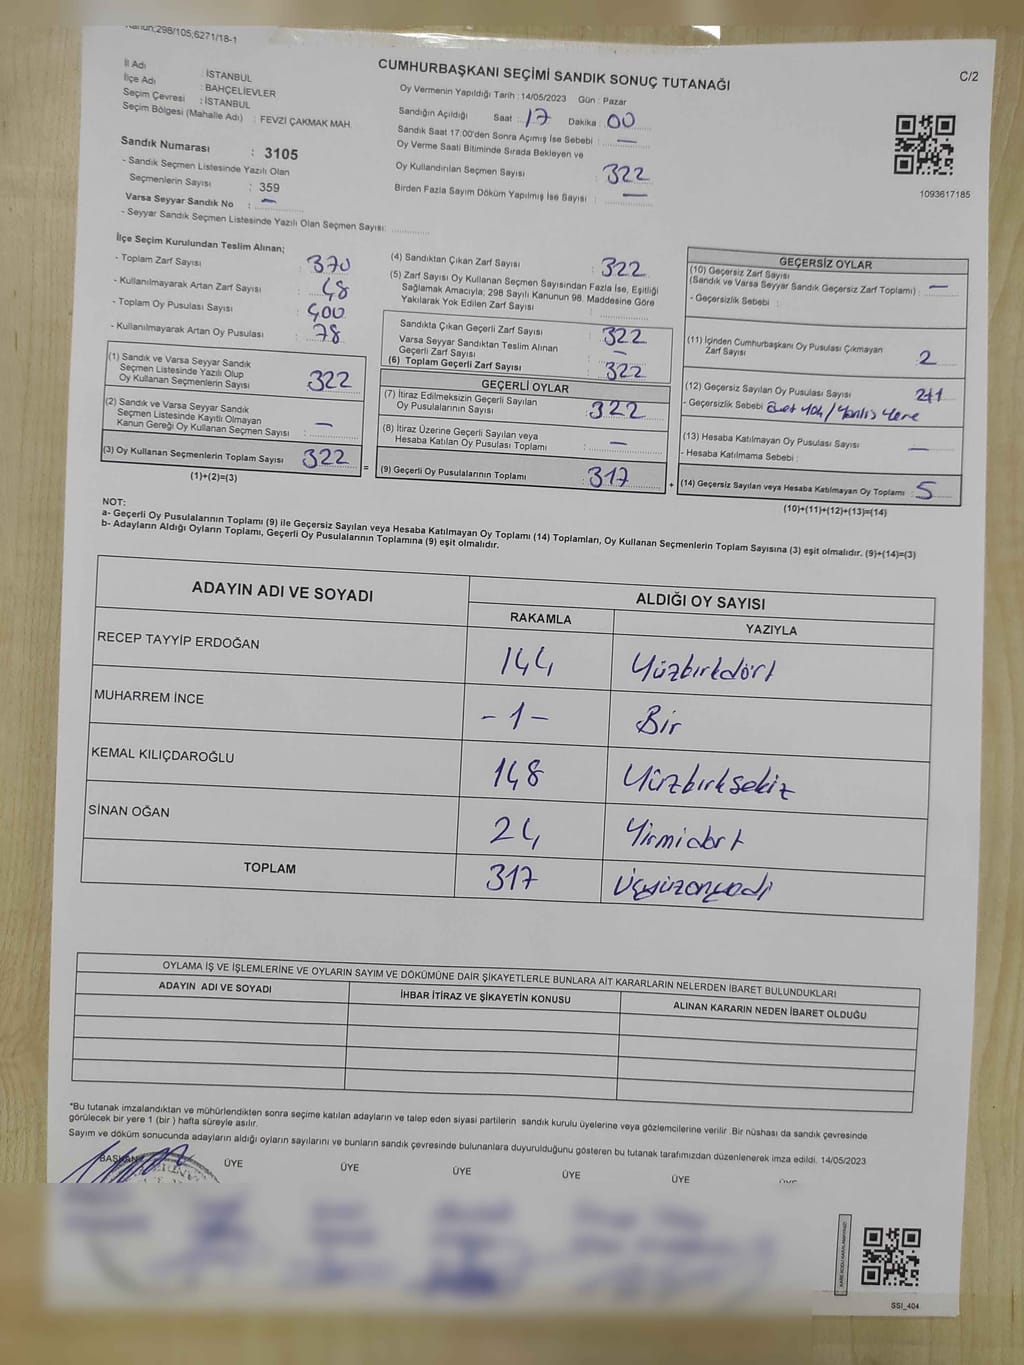 Kanun;298/105;6271/18-1
CUMHURBAŞKANI SEÇİMİ SANDIK SONUÇ TUTANAĞI
C/2
İl Adı : İSTANBUL
İlçe Adı : BAHÇELİEVLER
Seçim Çevresi : İSTANBUL
Seçim Bölgesi (Mahalle Adı) : FEVZİ ÇAKMAK MAH.
Sandık Numarası : 3105
- Sandık Seçmen Listesinde Yazılı Olan
Seçmenlerin Sayısı : 359
Varsa Seyyar Sandık No : –
- Seyyar Sandık Seçmen Listesinde Yazılı Olan Seçmen Sayısı:
Oy Vermenin Yapıldığı Tarih : 14/05/2023 Gün : Pazar
Sandığın Açıldığı Saat : 17 Dakika : 00
Sandık Saat 17:00'den Sonra Açımış İse Sebebi : –
Oy Verme Saati Bitiminde Sırada Bekleyen ve
Oy Kullandırılan Seçmen Sayısı : 322
Birden Fazla Sayım Döküm Yapılmış İse Sayısı : –
1093617185
İlçe Seçim Kurulundan Teslim Alınan;
- Toplam Zarf Sayısı : 370
- Kullanılmayarak Artan Zarf Sayısı : 48
- Toplam Oy Pusulası Sayısı : 400
- Kullanılmayarak Artan Oy Pusulası : 78
(1) Sandık ve Varsa Seyyar Sandık
Seçmen Listesinde Yazılı Olup
Oy Kullanan Seçmenlerin Sayısı : 322
(2) Sandık ve Varsa Seyyar Sandık
Seçmen Listesinde Kayıtlı Olmayan
Kanun Gereği Oy Kullanan Seçmen Sayısı : –
(3) Oy Kullanan Seçmenlerin Toplam Sayısı : 322
(1)+(2)=(3)
=
(4) Sandıktan Çıkan Zarf Sayısı : 322
(5) Zarf Sayısı Oy Kullanan Seçmen Sayısından Fazla İse, Eşitliği
Sağlamak Amacıyla; 298 Sayılı Kanunun 98. Maddesine Göre
Yakılarak Yok Edilen Zarf Sayısı :
Sandıkta Çıkan Geçerli Zarf Sayısı : 322
Varsa Seyyar Sandıktan Teslim Alınan
Geçerli Zarf Sayısı : –
(6) Toplam Geçerli Zarf Sayısı : 322
GEÇERLİ OYLAR
(7) İtiraz Edilmeksizin Geçerli Sayılan
Oy Pusulalarının Sayısı : 322
(8) İtiraz Üzerine Geçerli Sayılan veya
Hesaba Katılan Oy Pusulası Toplamı : –
(9) Geçerli Oy Pusulalarının Toplamı : 317
+
GEÇERSİZ OYLAR
(10) Geçersiz Zarf Sayısı
(Sandık ve Varsa Seyyar Sandık Geçersiz Zarf Toplamı) : –
- Geçersizlik Sebebi :
(11) İçinden Cumhurbaşkanı Oy Pusulası Çıkmayan
Zarf Sayısı : 2
(12) Geçersiz Sayılan Oy Pusulası Sayısı : 2+1
- Geçersizlik Sebebi
(13) Hesaba Katılmayan Oy Pusulası Sayısı : –
- Hesaba Katılmama Sebebi :
(14) Geçersiz Sayılan veya Hesaba Katılmayan Oy Toplamı : 5
(10)+(11)+(12)+(13)=(14)
NOT:
a- Geçerli Oy Pusulalarının Toplamı (9) ile Geçersiz Sayılan veya Hesaba Katılmayan Oy Toplamı (14) Toplamları, Oy Kullanan Seçmenlerin Toplam Sayısına (3) eşit olmalıdır. (9)+(14)=(3)
b- Adayların Aldığı Oyların Toplamı, Geçerli Oy Pusulalarının Toplamına (9) eşit olmalıdır.
ADAYIN ADI VE SOYADI
ALDIĞI OY SAYISI
RAKAMLA YAZIYLA
RECEP TAYYİP ERDOĞAN 144 Yüzkırkdört
MUHARREM İNCE -1- Bir
KEMAL KILIÇDAROĞLU 148 Yüzkırksekiz
SİNAN OĞAN 24 Yirmidört
TOPLAM 317 Üçyüzonyedi
OYLAMA İŞ VE İŞLEMLERİNE VE OYLARIN SAYIM VE DÖKÜMÜNE DAİR ŞİKAYETLERLE BUNLARA AİT KARARLARIN NELERDEN İBARET BULUNDUKLARI
ADAYIN ADI VE SOYADI İHBAR İTİRAZ VE ŞİKAYETİN KONUSU ALINAN KARARIN NEDEN İBARET OLDUĞU
"Bu tutanak imzalandıktan ve mühürlendikten sonra seçime katılan adayların ve talep eden siyasi partilerin sandık kurulu üyelerine veya gözlemcilerine verilir. Bir nüshası da sandık çevresinde
görülecek bir yere 1 (bir ) hafta süreyle asılır.
Sayım ve döküm sonucunda adayların aldığı oyların sayılarını ve bunların sandık çevresinde bulunanlara duyurulduğunu gösteren bu tutanak tarafımızdan düzenlenerek imza edildi. 14/05/2023
BAŞKAN ÜYE ÜYE ÜYE ÜYE ÜYE ÜYE
SSI_404